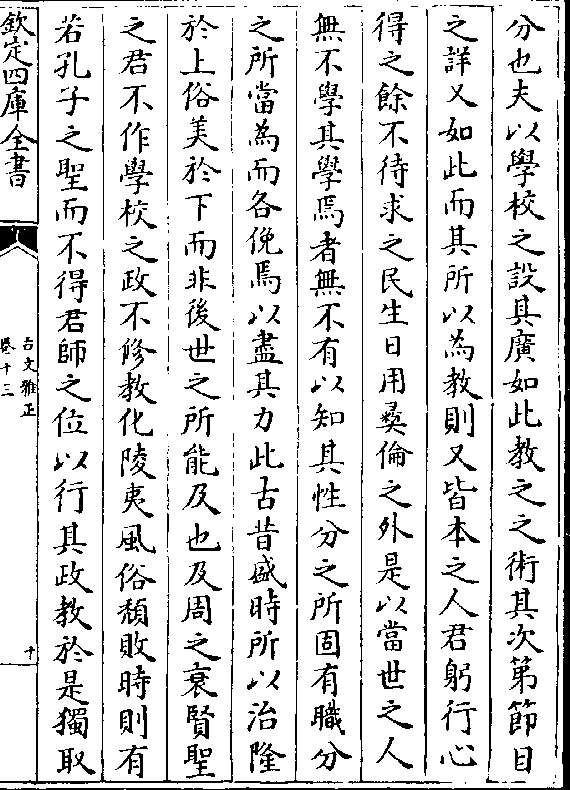 分也夫以學校之設其廣如此教之之術其次第節目
之詳又如此而其所以為教則又皆本之人君躬行心
得之餘不待求之民生日用彞倫之外是以當世之人
無不學其學焉者無不有以知其性分之所固有職分
之所當為而各俛焉以盡其力此古昔盛時所以治隆
於上俗美於下而非後世之所能及也及周之衰賢聖
之君不作學校之政不修教化陵夷風俗頽敗時則有
若孔子之聖而不得君師之位以行其政教於是獨取
欽定四庫全書
古文雅正
卷十三
十